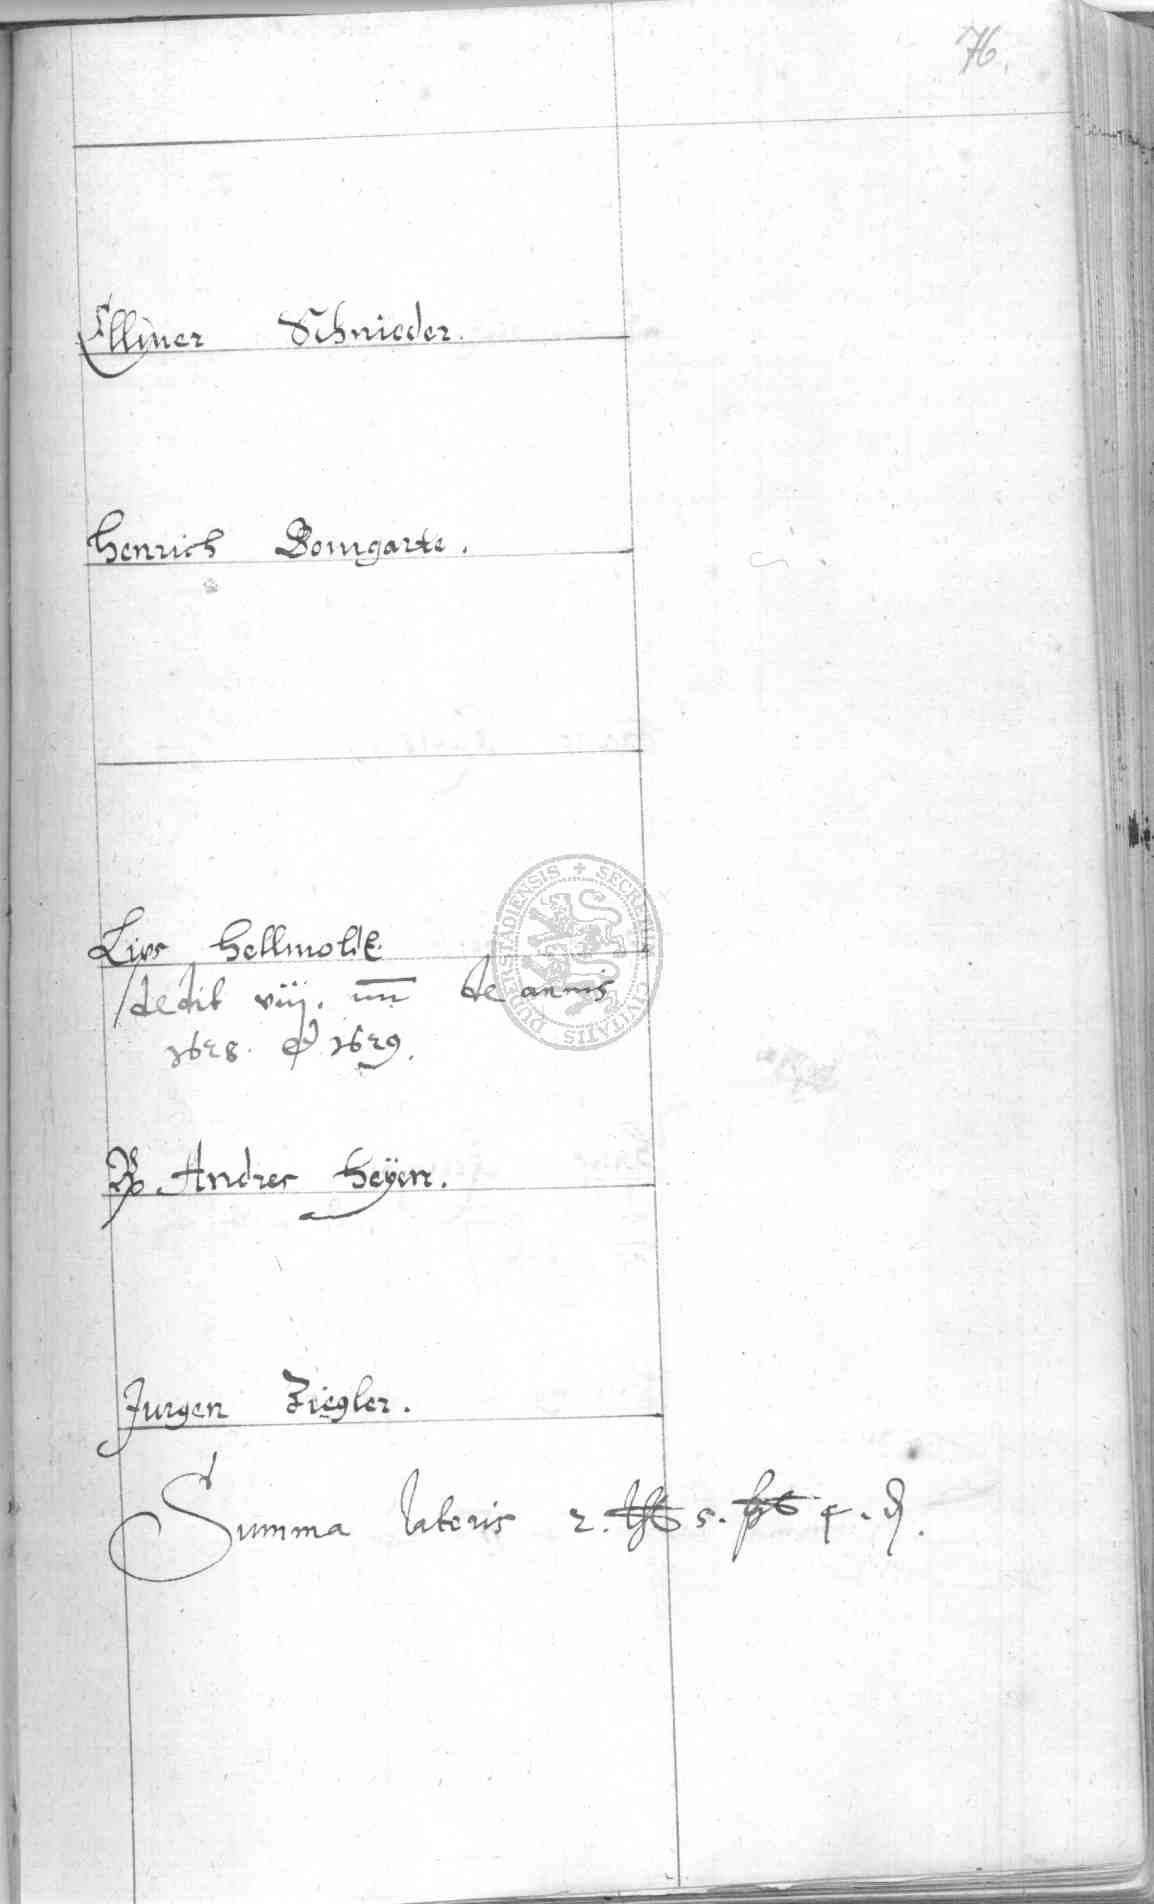 76.
Ellmer Schnieder.
Henrich Bomgarte.
Lips Hellmoldt.
dedit viij. de annis
1628. et 1629.
Andres Heÿen.
Jurgen Ziegler.
Summa lateris 2. 5. 4. ₰.
SECRETUM CIVITATIS DUDERSTADIENSIS